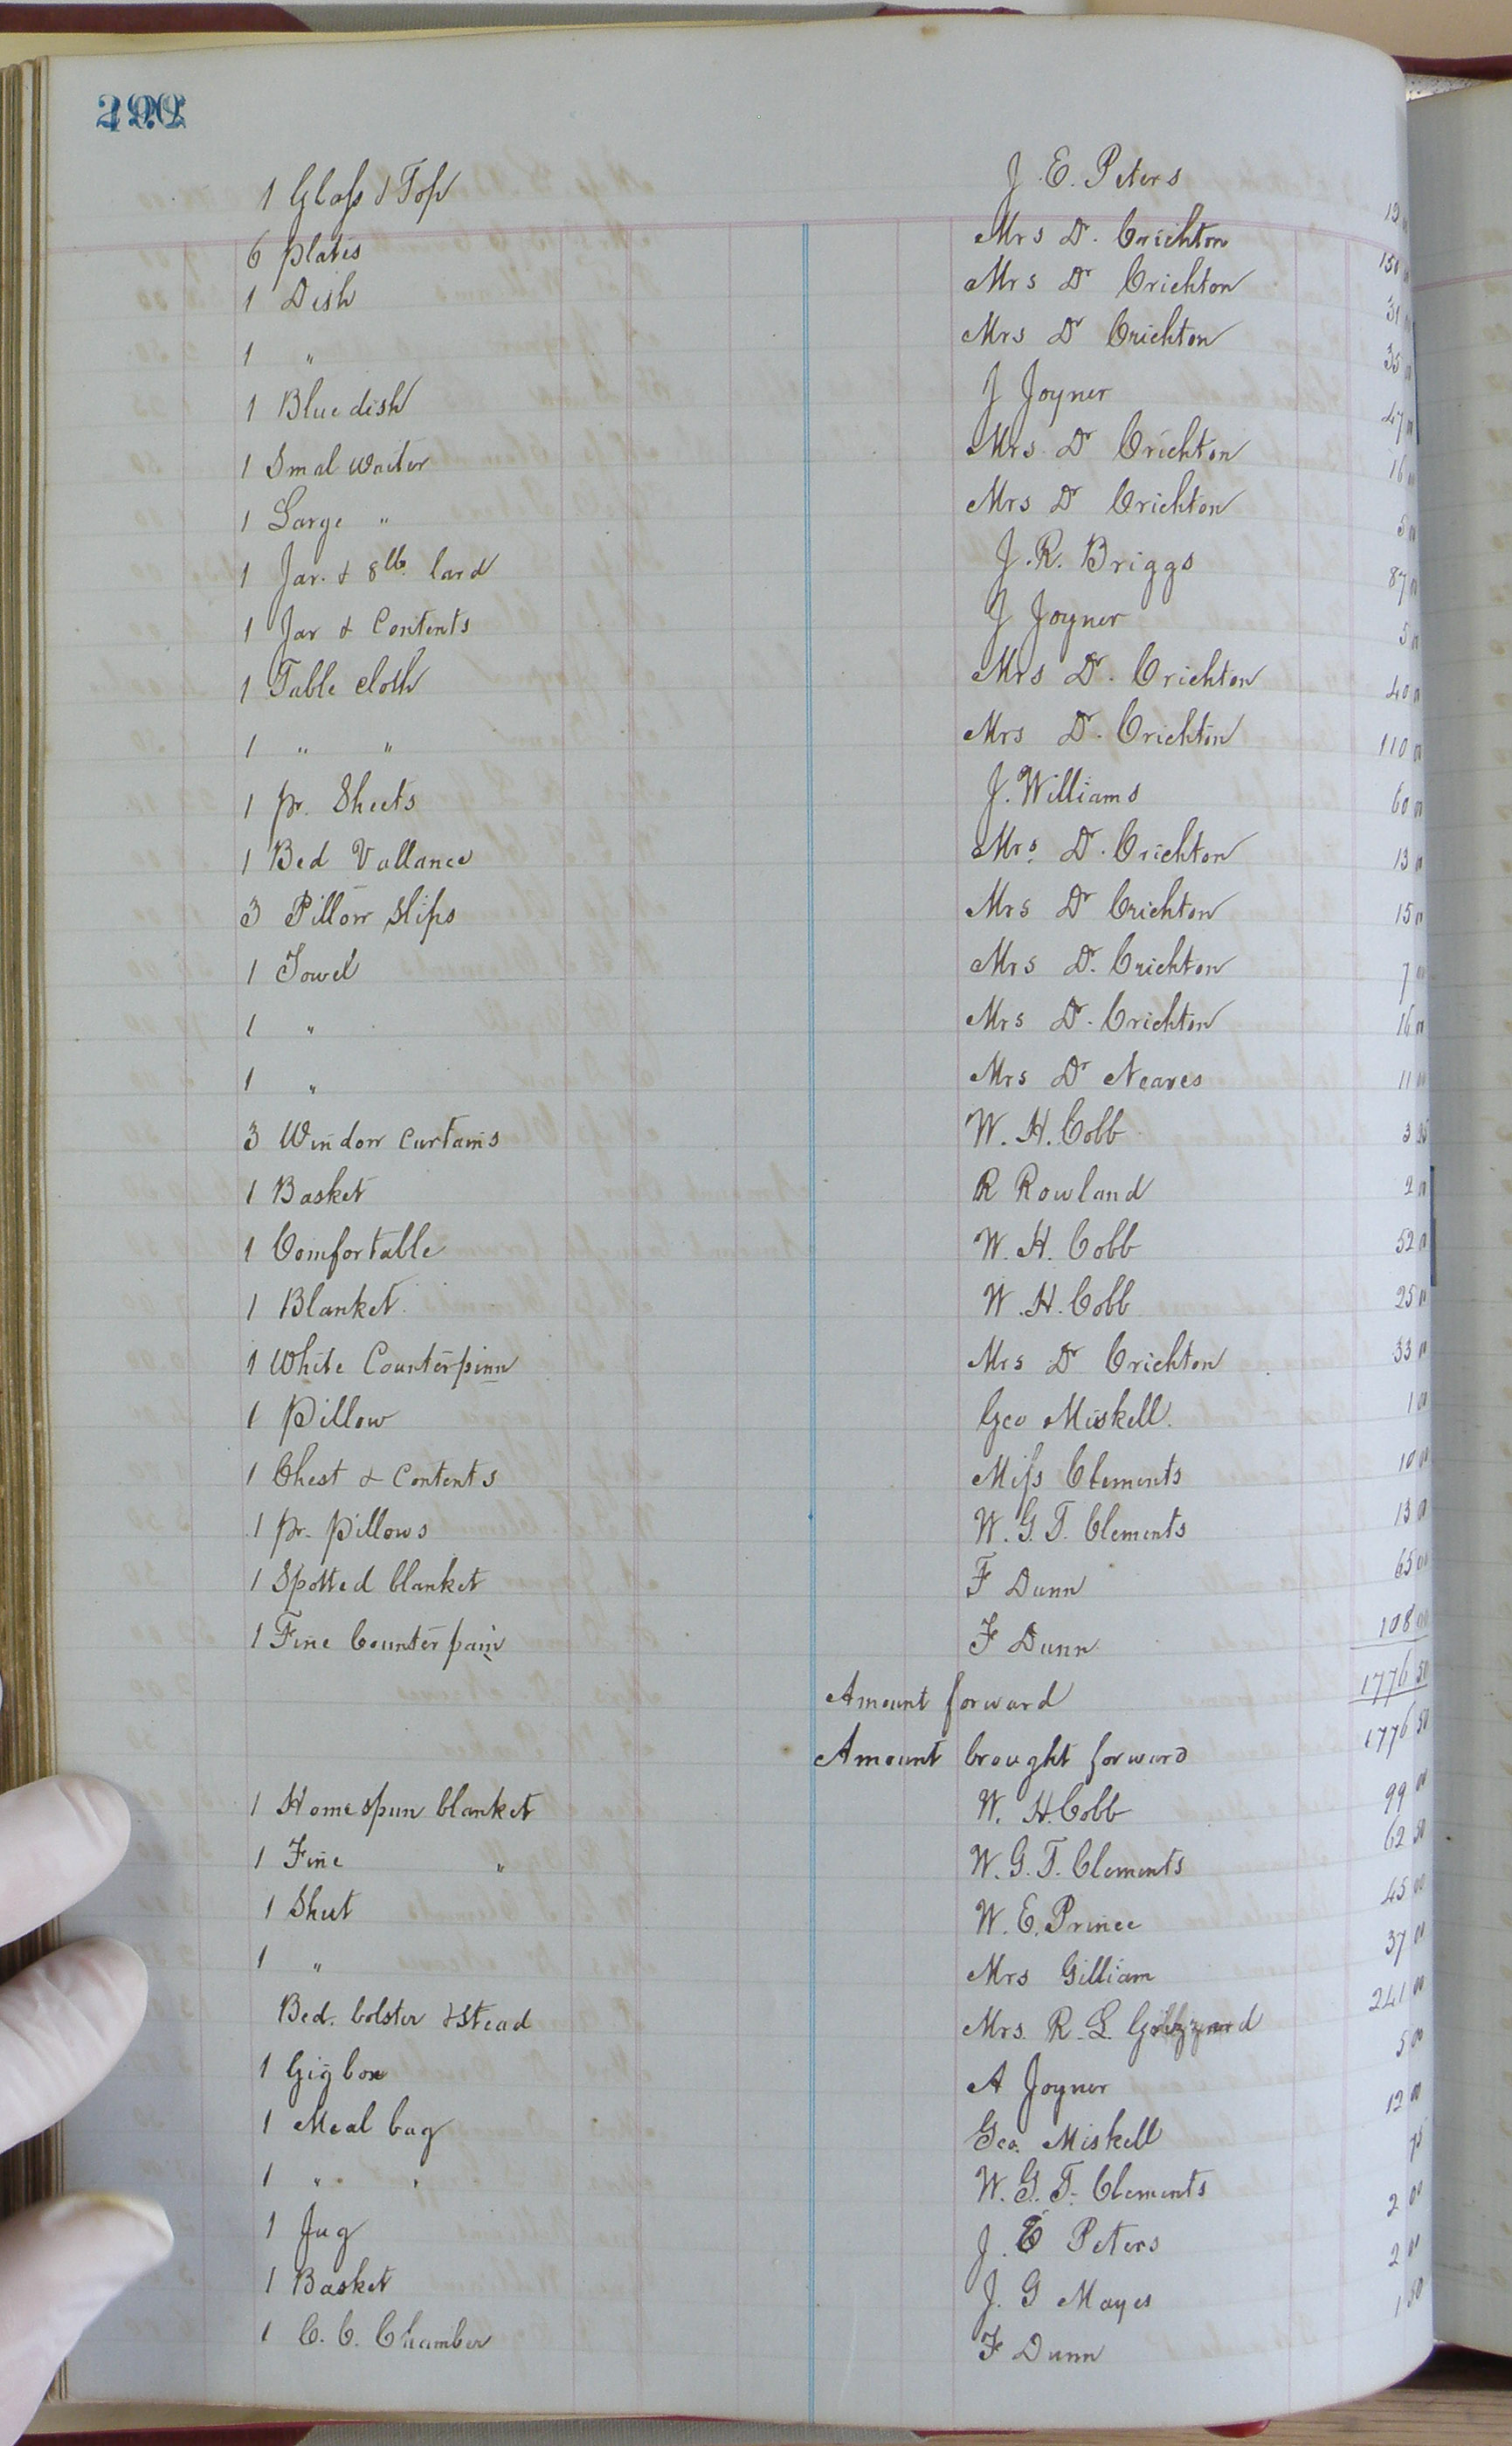 1 Glass & Top J. E. Peters
6 plates Mrs Dr. Crichton 150
1 Dish Mrs Dr Crichton 31
1 " Mrs Dr Crichton 35
1 Blue dish J Joyner 47
1 Smal waiter Mrs. Dr Crichton 16
1 Large " Mrs Dr Crichton
1 Jar. & 8 lb. lard J. R. Briggs 87
1 Jar & Contents J Joyner 5
1 Table cloth Mrs Dr. Crichton 40
1 " " Mrs Dr. Crichton 110
1 pr. Sheets J. Williams 60
1 Bed Vallance Mrs. Dr. Crichton 13
3 Pillow slips Mrs Dr Crichton 15
1 Towel Mrs Dr. Crichton 7
1 " Mrs Dr. Crichton 16
1 " Mrs Dr Neaves 11
3 Window Curtains W. H. Cobb 3
1 Basket R Rowland 2
1 Comfortable W. H. Cobb 52
1 Blanket W. H. Cobb 25
1 White Counterpinn Mrs Dr Crichton 33
1 Pillow Geo Miskell. 1 00
1 Chest & Contents Miss Clements 10 00
1 pr. pillows W. G. T. Clements 13
1 Spotted blanket F Dunn 65 00
1 Fine Counterpain F Dunn 108 00
Amount forward 1776 50
Amount brought forward 1776 50
1 Homespun blanket W. H. Cobb 99 00
1 Fine " W. G. T. Clements 62 50
1 Sheet W. E. Prince 45 00
1 " Mrs Gilliam 37 00
Bed. bolster & stead Mrs. R. L. 241 00
1 Gig box A Joyner 5 00
1 Meal bag Geo. Miskell 12 00
1 " " W. G. T. Clements 75
1 Jug J. E Peters 2 00
1 Basket J. G Mayes 2 00
1 C. C. Chamber F Dunn 1 50